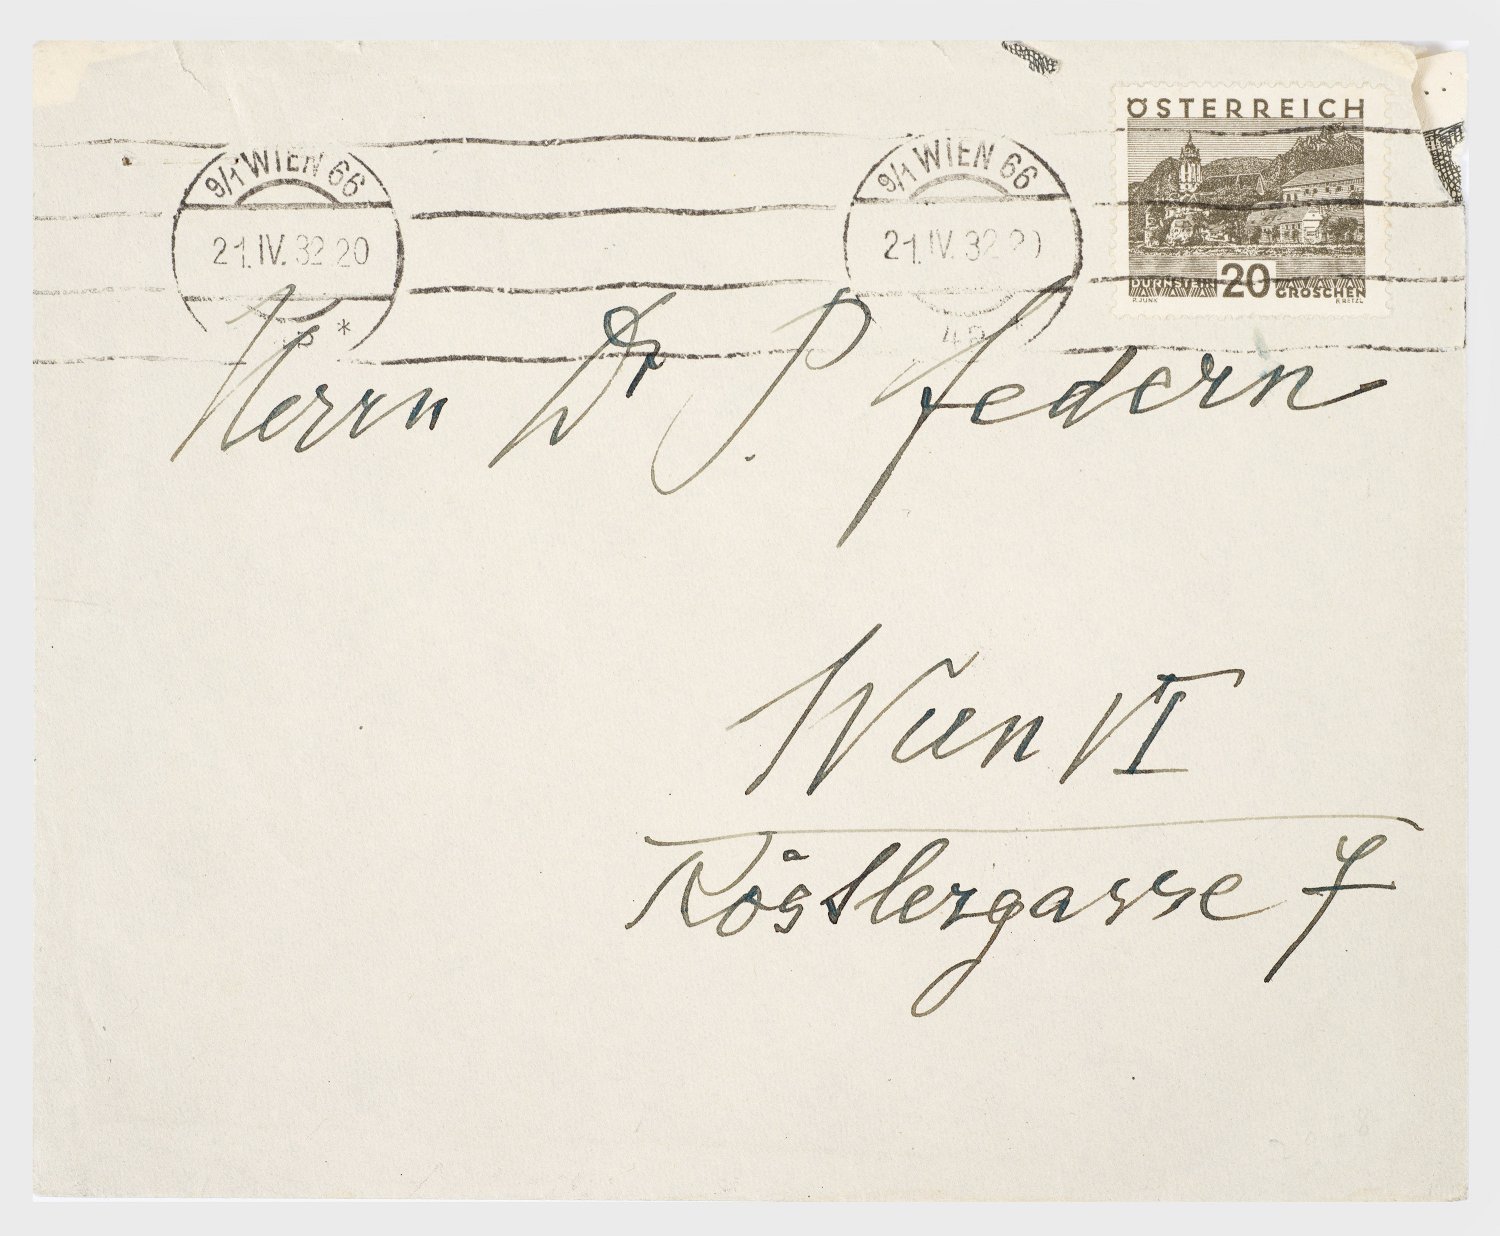 ÖSTERREICH
9/1 WIEN 66
21.IV.32 20
9/1 WIEN 66
21.IV.32 20
20
GROSCHEN
Herrn Dr P. Federn
Wien VI
Röstlergasse 7